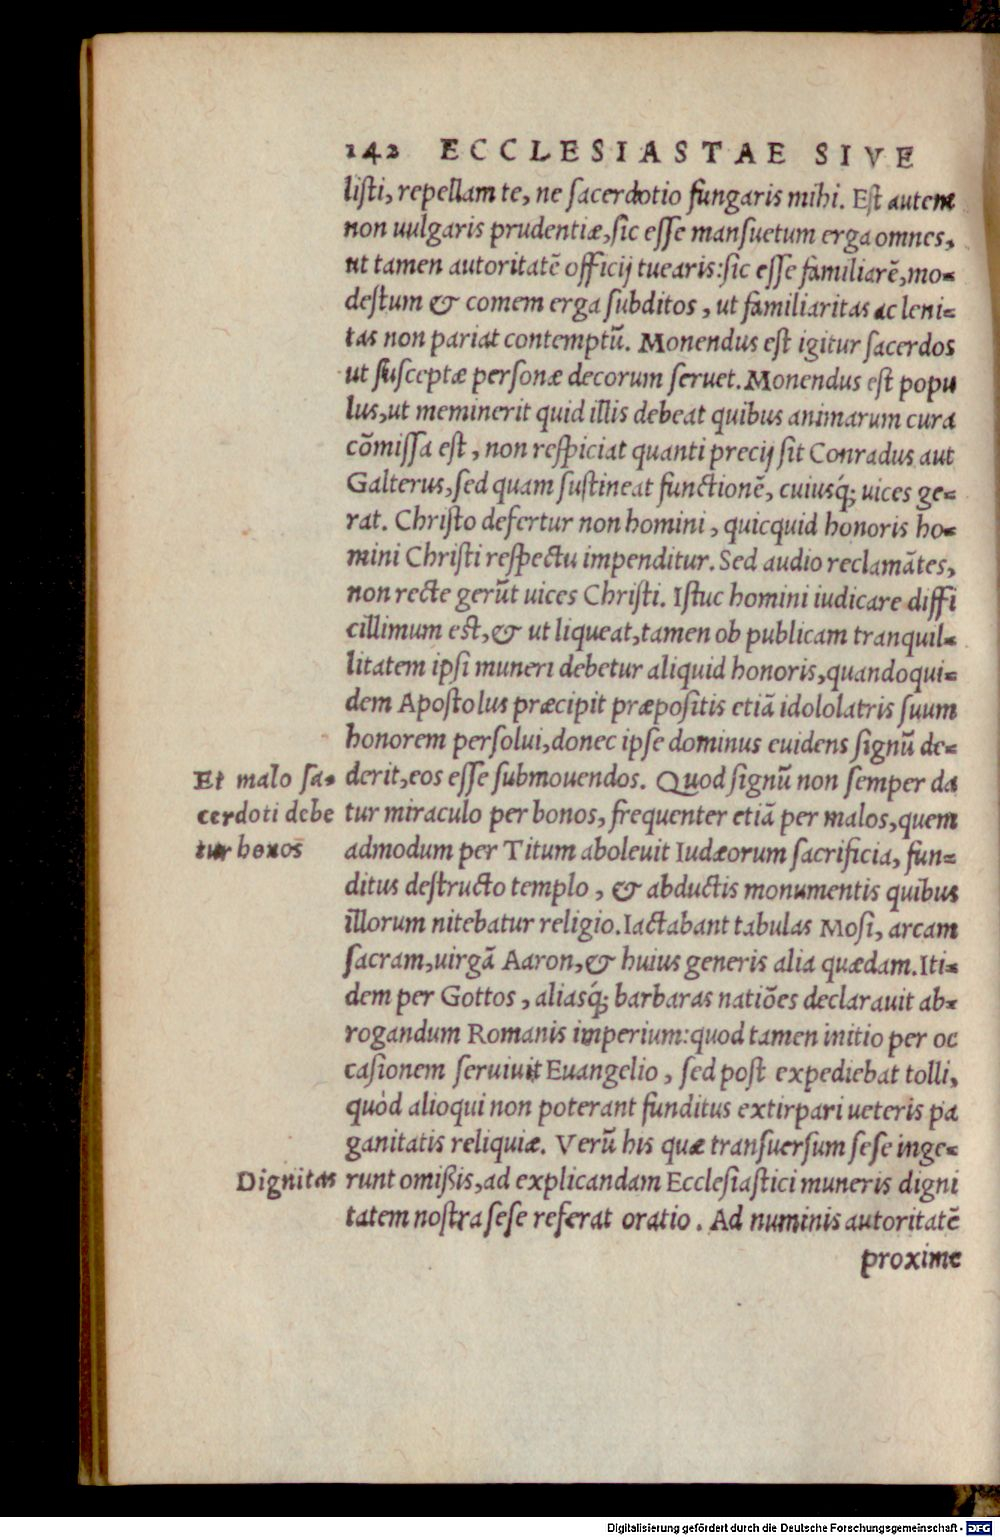 142 ECCLESIASTAE SIVE
listi, repellam te, ne sacerdotio fungaris mihi. Est autem
non uulgaris prudentiæ, sic esse mansuetum erga omnes,
ut tamen autoritatē officij tuearis: sic esse familiarē, mo-
destum & comem erga subditos, ut familiaritas ac leni-
tas non pariat contemptū. Monendus est igitur sacerdos
ut susceptæ personæ decorum seruet. Monendus est popu
lus, ut meminerit quid illis debeat quibus animarum cura
cōmissa est, non respiciat quanti precij sit Conradus aut
Galterus, sed quam sustineat functionē, cuiusq́; uices ge-
rat. Christo defertur non homini, quicquid honoris ho-
mini Christi respectu impenditur. Sed audio reclamātes,
non recte gerūt uices Christi. Istuc homini iudicare diffi
cillimum est, & ut liqueat, tamen ob publicam tranquil-
litatem ipsi muneri debetur aliquid honoris, quandoqui-
dem Apostolus præcipit præpositis etiā idololatris suum
honorem persolui, donec ipse dominus euidens signū de-
Et malo sa-
cerdoti debe
tur honos
derit, eos esse submouendos. Quod signū non semper da
tur miraculo per bonos, frequenter etiā per malos, quem
admodum per Titum aboleuit Iudæorum sacrificia, fun-
ditus destructo templo, & abductis monumentis quibus
illorum nitebatur religio. Iactabant tabulas Mosi, arcam
sacram, uirgā Aaron, & huius generis alia quædam. Iti-
dem per Gottos, aliasq́; barbaras natiōes declarauit ab-
rogandum Romanis imperium: quod tamen initio per oc
casionem seruiuit Euangelio, sed post expediebat tolli,
quòd alioqui non poterant funditus extirpari ueteris pa
ganitatis reliquiæ. Verū his quæ transuersum sese inge-
Dignitas
runt omißis, ad explicandam Ecclesiastici muneris digni
tatem nostra sese referat oratio. Ad numinis autoritatē
proxime
Digitalisierung gefördert durch die Deutsche Forschungsgemeinschaft - DFG